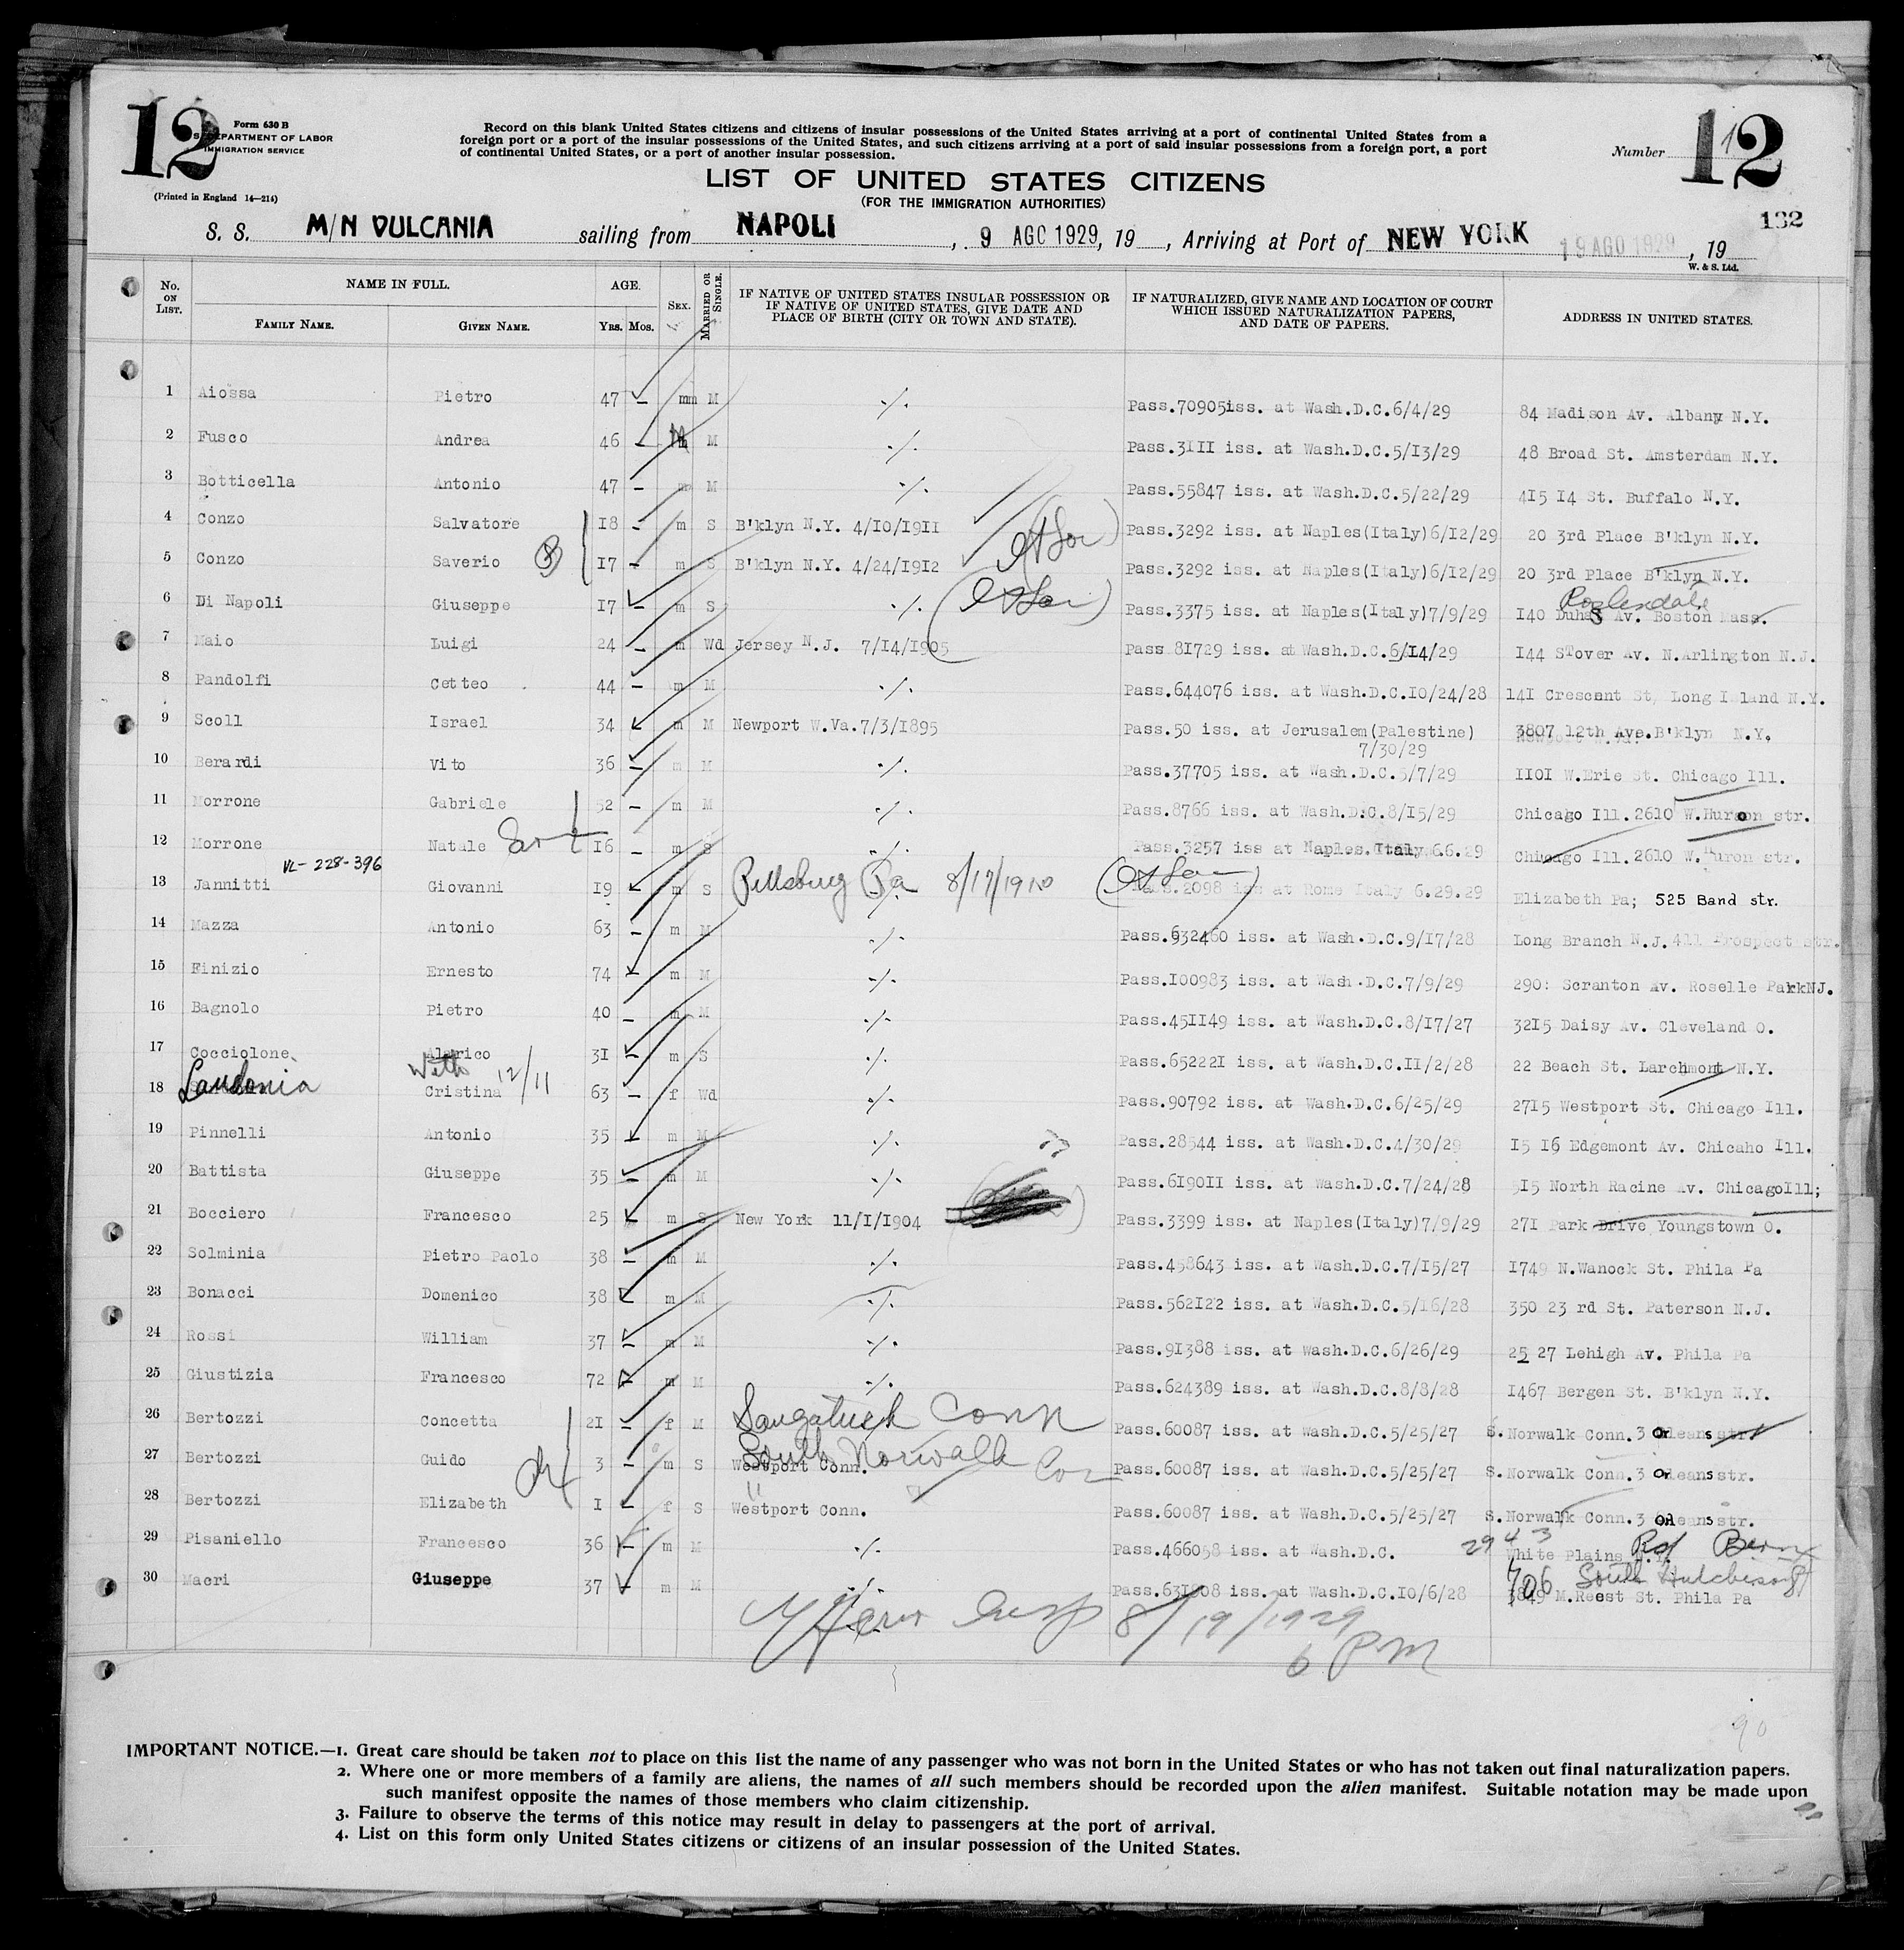 12
Form 630 B
DEPARTMENT OF LABOR
IMMIGRATION SERVICE
(Printed in England 14—214)
Record on this blank United States citizens and citizens of insular possessions of the United States arriving at a port of continental United States from a
foreign port or a port of the insular possessions of the United States, and such citizens arriving at a port of said insular possessions from a foreign port, a port
of continental United States, or a port of another insular possession.
Number 1
12
LIST OF UNITED STATES CITIZENS
(FOR THE IMMIGRATION AUTHORITIES)
132
S. S. M/N VULCANIA sailing from NAPOLI, 9 AGO 1929, 19 , Arriving at Port of NEW YORK 19 AGO 1929, 19
W. & S. Ltd.
No. ON LIST. NAME IN FULL. FAMILY NAME. GIVEN NAME. AGE. YRS. MOS. SEX. MARRIED OR SINGLE. IF NATIVE OF UNITED STATES INSULAR POSSESSION OR IF NATIVE OF UNITED STATES, GIVE DATE AND PLACE OF BIRTH (CITY OR TOWN AND STATE). IF NATURALIZED, GIVE NAME AND LOCATION OF COURT WHICH ISSUED NATURALIZATION PAPERS, AND DATE OF PAPERS. ADDRESS IN UNITED STATES.
1 Aiossa Pietro 47 – mm M -/- Pass.70905iss. at Wash.D.C.6/4/29 84 Madison Av. Albany N.Y.
2 Fusco Andrea 46 – m M -/- Pass.3III iss. at Wash.D.C.5/I3/29 48 Broad St. Amsterdam N.Y.
3 Botticella Antonio 47 – m M -/- Pass.55847 iss. at Wash.D.C.5/22/29 4I5 I4 St. Buffalo N.Y.
4 Conzo Salvatore I8 – m S B'klyn N.Y. 4/IO/I9II Pass.3292 iss. at Naples(Italy)6/I2/29 20 3rd Place B'klyn N.Y.
5 Conzo Saverio I7 – m S B'klyn N.Y. 4/24/I9I2 Pass.3292 iss. at Naples(Italy)6/I2/29 20 3rd Place B'klyn N.Y.
6 Di Napoli Giuseppe I7 – m S -/- Pass.3375 iss. at Naples(Italy)7/9/29 I40 Av. Boston Mass.
7 Maio Luigi 24 – m Wd Jersey N.J. 7/I4/I905 Pass.8I729 iss. at Wash.D.C.6/I4/29 I44 STover Av. N.Arlington N.J.
8 Pandolfi Cetteo 44 – m M -/- Pass.644076 iss. at Wash.D.C.IO/24/28 I4I Crescent St, Long Island N.Y.
9 Scoll Israel 34 m M Newport W.Va.7/3/I895 Pass.50 iss. at Jerusalem(Palestine) 7/30/29 3807 12th Ave.B'klyn N.Y.
10 Berardi Vito 36 – m M -/- Pass.37705 iss. at Wash.D.C.5/7/29 IIOI W.Erie St. Chicago Ill.
11 Morrone Gabriele 52 – m M -/- Pass.8766 iss. at Wash.D.C.8/I5/29 Chicago Ill. 2610 W.Huron str.
12 Morrone Natale I6 – m S -/- Pass.3257 iss at Naples Italy 6.6.29 Chicago Ill. 2610 W.Huron str.
VL-228-396
13 Jannitti Giovanni I9 m S Pittsburg Pa 8/17/1910 Pass.2098 iss at Rome Italy 6.29.29 Elizabeth Pa; 525 Band str.
14 Mazza Antonio 63 – m M -/- Pass.932460 iss. at Wash.D.C.9/I7/28 Long Branch N.J. 411 Prospect str.
15 Finizio Ernesto 74 – m M -/- Pass.I00983 iss. at Wash.D.C.7/9/29 290: Scranton Av. Roselle ParkNJ.
16 Bagnolo Pietro 40 – m M -/- Pass.45II49 iss. at Wash.D.C.8/I7/27 32I5 Daisy Av. Cleveland O.
17 Cocciolone 3I – m S -/- Pass.65222I iss. at Wash.D.C.II/2/28 22 Beach St. Larchmont N.Y.
18 Laudonia With 12/11 Cristina 63 – f Wd -/- Pass.90792 iss. at Wash.D.C.6/25/29 27I5 Westport St. Chicago Ill.
19 Pinnelli Antonio 35 m M -/- Pass.28544 iss. at Wash.D.C.4/30/29 I5 I6 Edgemont Av. Chicaho Ill.
20 Battista Giuseppe 35 – m M -/- Pass.6I90II iss. at Wash.D.C.7/24/28 5I5 North Racine Av. ChicagoIll;
21 Bocciero Francesco 25 m S New York 11/I/1904 Pass.3399 iss. at Naples(Italy)7/9/29 27I Park Drive Youngstown O.
22 Solminia Pietro Paolo 38 – m M -/- Pass.458643 iss. at Wash.D.C.7/I5/27 I749 N.Wanock St. Phila Pa
23 Bonacci Domenico 38 m M -/- Pass.562I22 iss. at Wash.D.C.5/I6/28 350 23 rd St. Paterson N.J.
24 Rossi William 37 – m M -/- Pass.9I388 iss. at Wash.D.C.6/26/29 25 27 Lehigh Av. Phila Pa
25 Giustizia Francesco 72 – m M -/- Pass.624389 iss. at Wash.D.C.8/8/28 I467 Bergen St. B'klyn N.Y.
26 Bertozzi Concetta 2I – f M Saugatuck Conn Pass.60087 iss. at Wash.D.C.5/25/27 S. Norwalk Conn. 3 Orleans str.
27 Bertozzi Guido 3 – m S South Norwalk Westport Conn. Pass.60087 iss. at Wash.D.C.5/25/27 S. Norwalk Conn. 3 Orleans str.
28 Bertozzi Elizabeth I – f S " Westport Conn. Pass.60087 iss. at Wash.D.C.5/25/27 S. Norwalk Conn. 3 Orleans str.
29 Pisaniello Francesco 36 m M -/- Pass.466058 iss. at Wash.D.C. 2943 White Plains Rd Bronx
30 Macri Giuseppe 37 m M -/- Pass.63I808 iss. at Wash.D.C.IO/6/28 706 South Hutchison St 3849 M.Reest St. Phila Pa
8/19/1929
6 PM
90
IMPORTANT NOTICE.—1. Great care should be taken not to place on this list the name of any passenger who was not born in the United States or who has not taken out final naturalization papers.
2. Where one or more members of a family are aliens, the names of all such members should be recorded upon the alien manifest. Suitable notation may be made upon
such manifest opposite the names of those members who claim citizenship.
3. Failure to observe the terms of this notice may result in delay to passengers at the port of arrival.
4. List on this form only United States citizens or citizens of an insular possession of the United States.